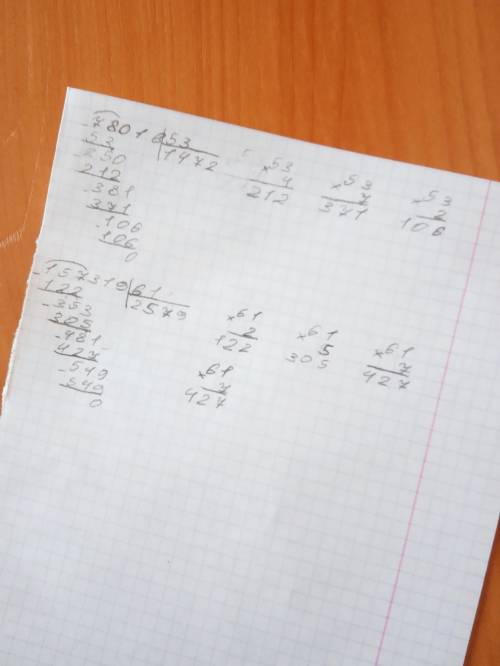 -78016|53
53 |1472
250
212
-381
371
-106
106
0
×53
4
212
×53
7
371
×53
2
106
-157319|61
122 |2579
-353
305
-481
427
-549
549
0
×61
2
122
×61
5
305
×61
7
427
×61
7
427